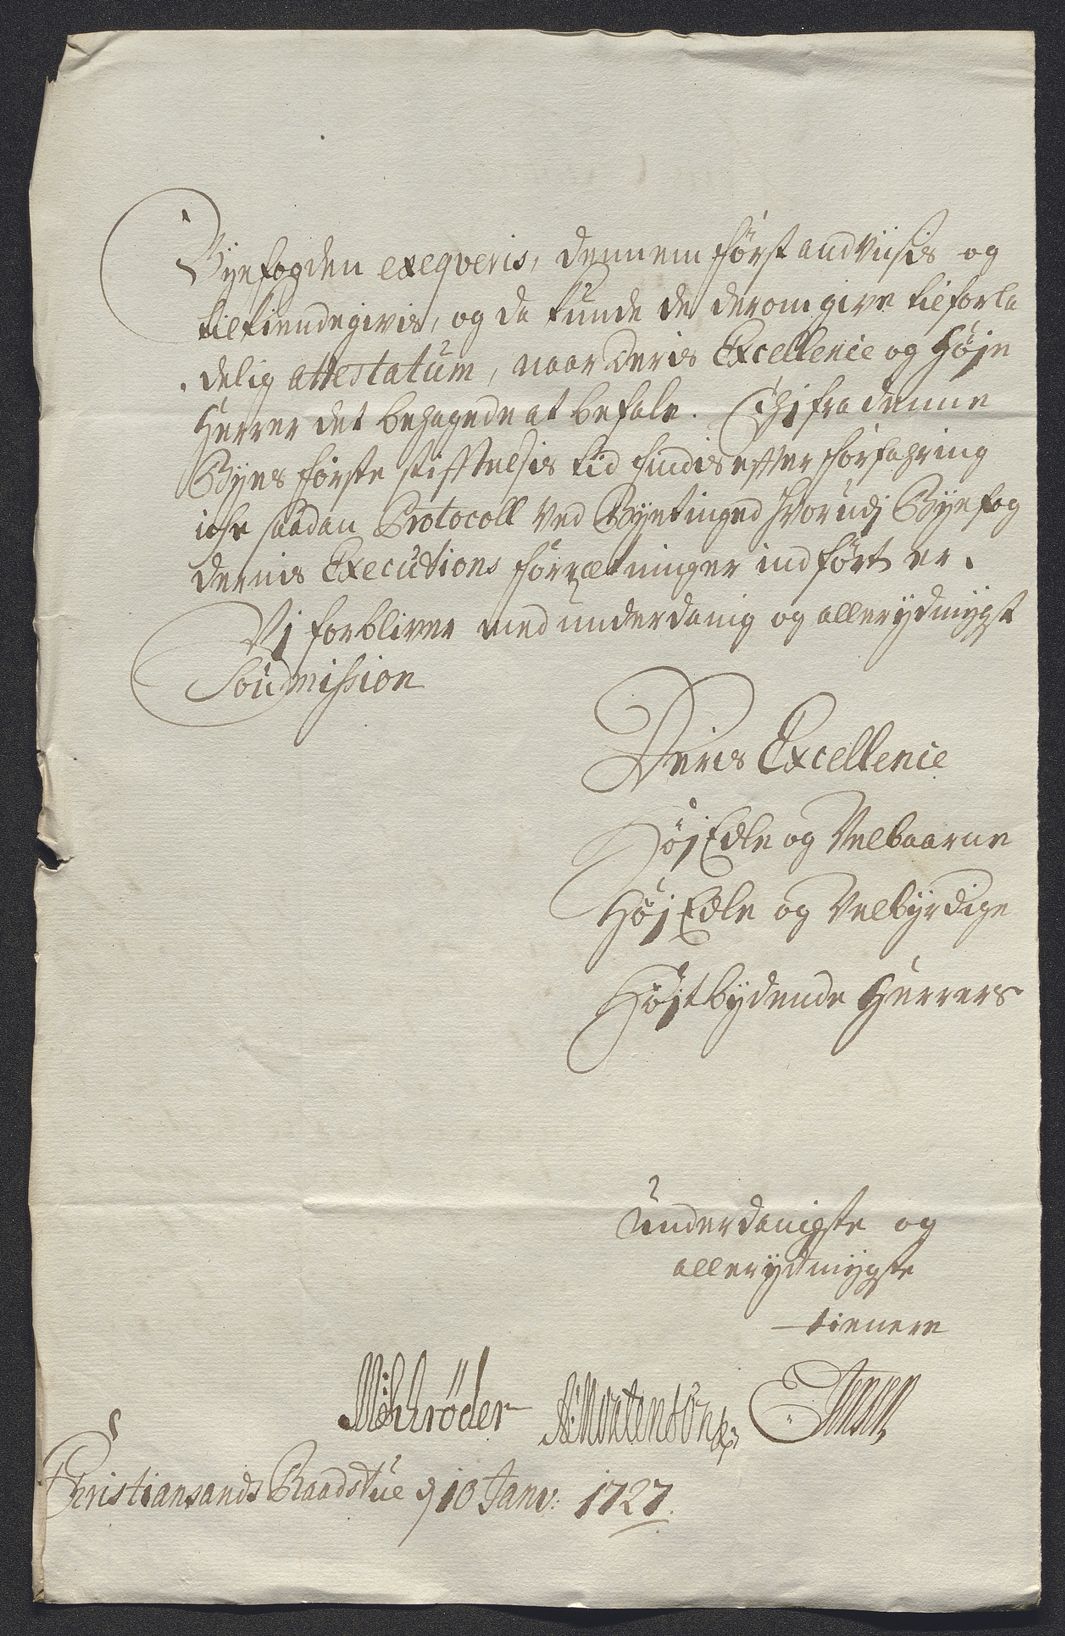 Byefogden exeqveris, dennem først andviisis og
tilkiendegivis, og da kunde de derom give tilforla
delig attestatum, naar Deris Excellence og Høje
Herrer det behagede at befale. Thj fra denne
Byes første stifftelsis tid findis effter forfahring
iche saadan Protocoll ved Byetinged hvorudj Byefog
dernis Executions forrætninger indført er.
Vj forbliver med underdanig og allerydmygst
Soumission
Deris Excellence
HøjEdle og Velbaarne
HøjEdle og Velbyrdige
Højtbydende Herrers
underdanigste og
allerydmygste
tienere
Schrøder A: Mortensøn Jensen
Christiansands Raadstue d 10 Janv: 1727.